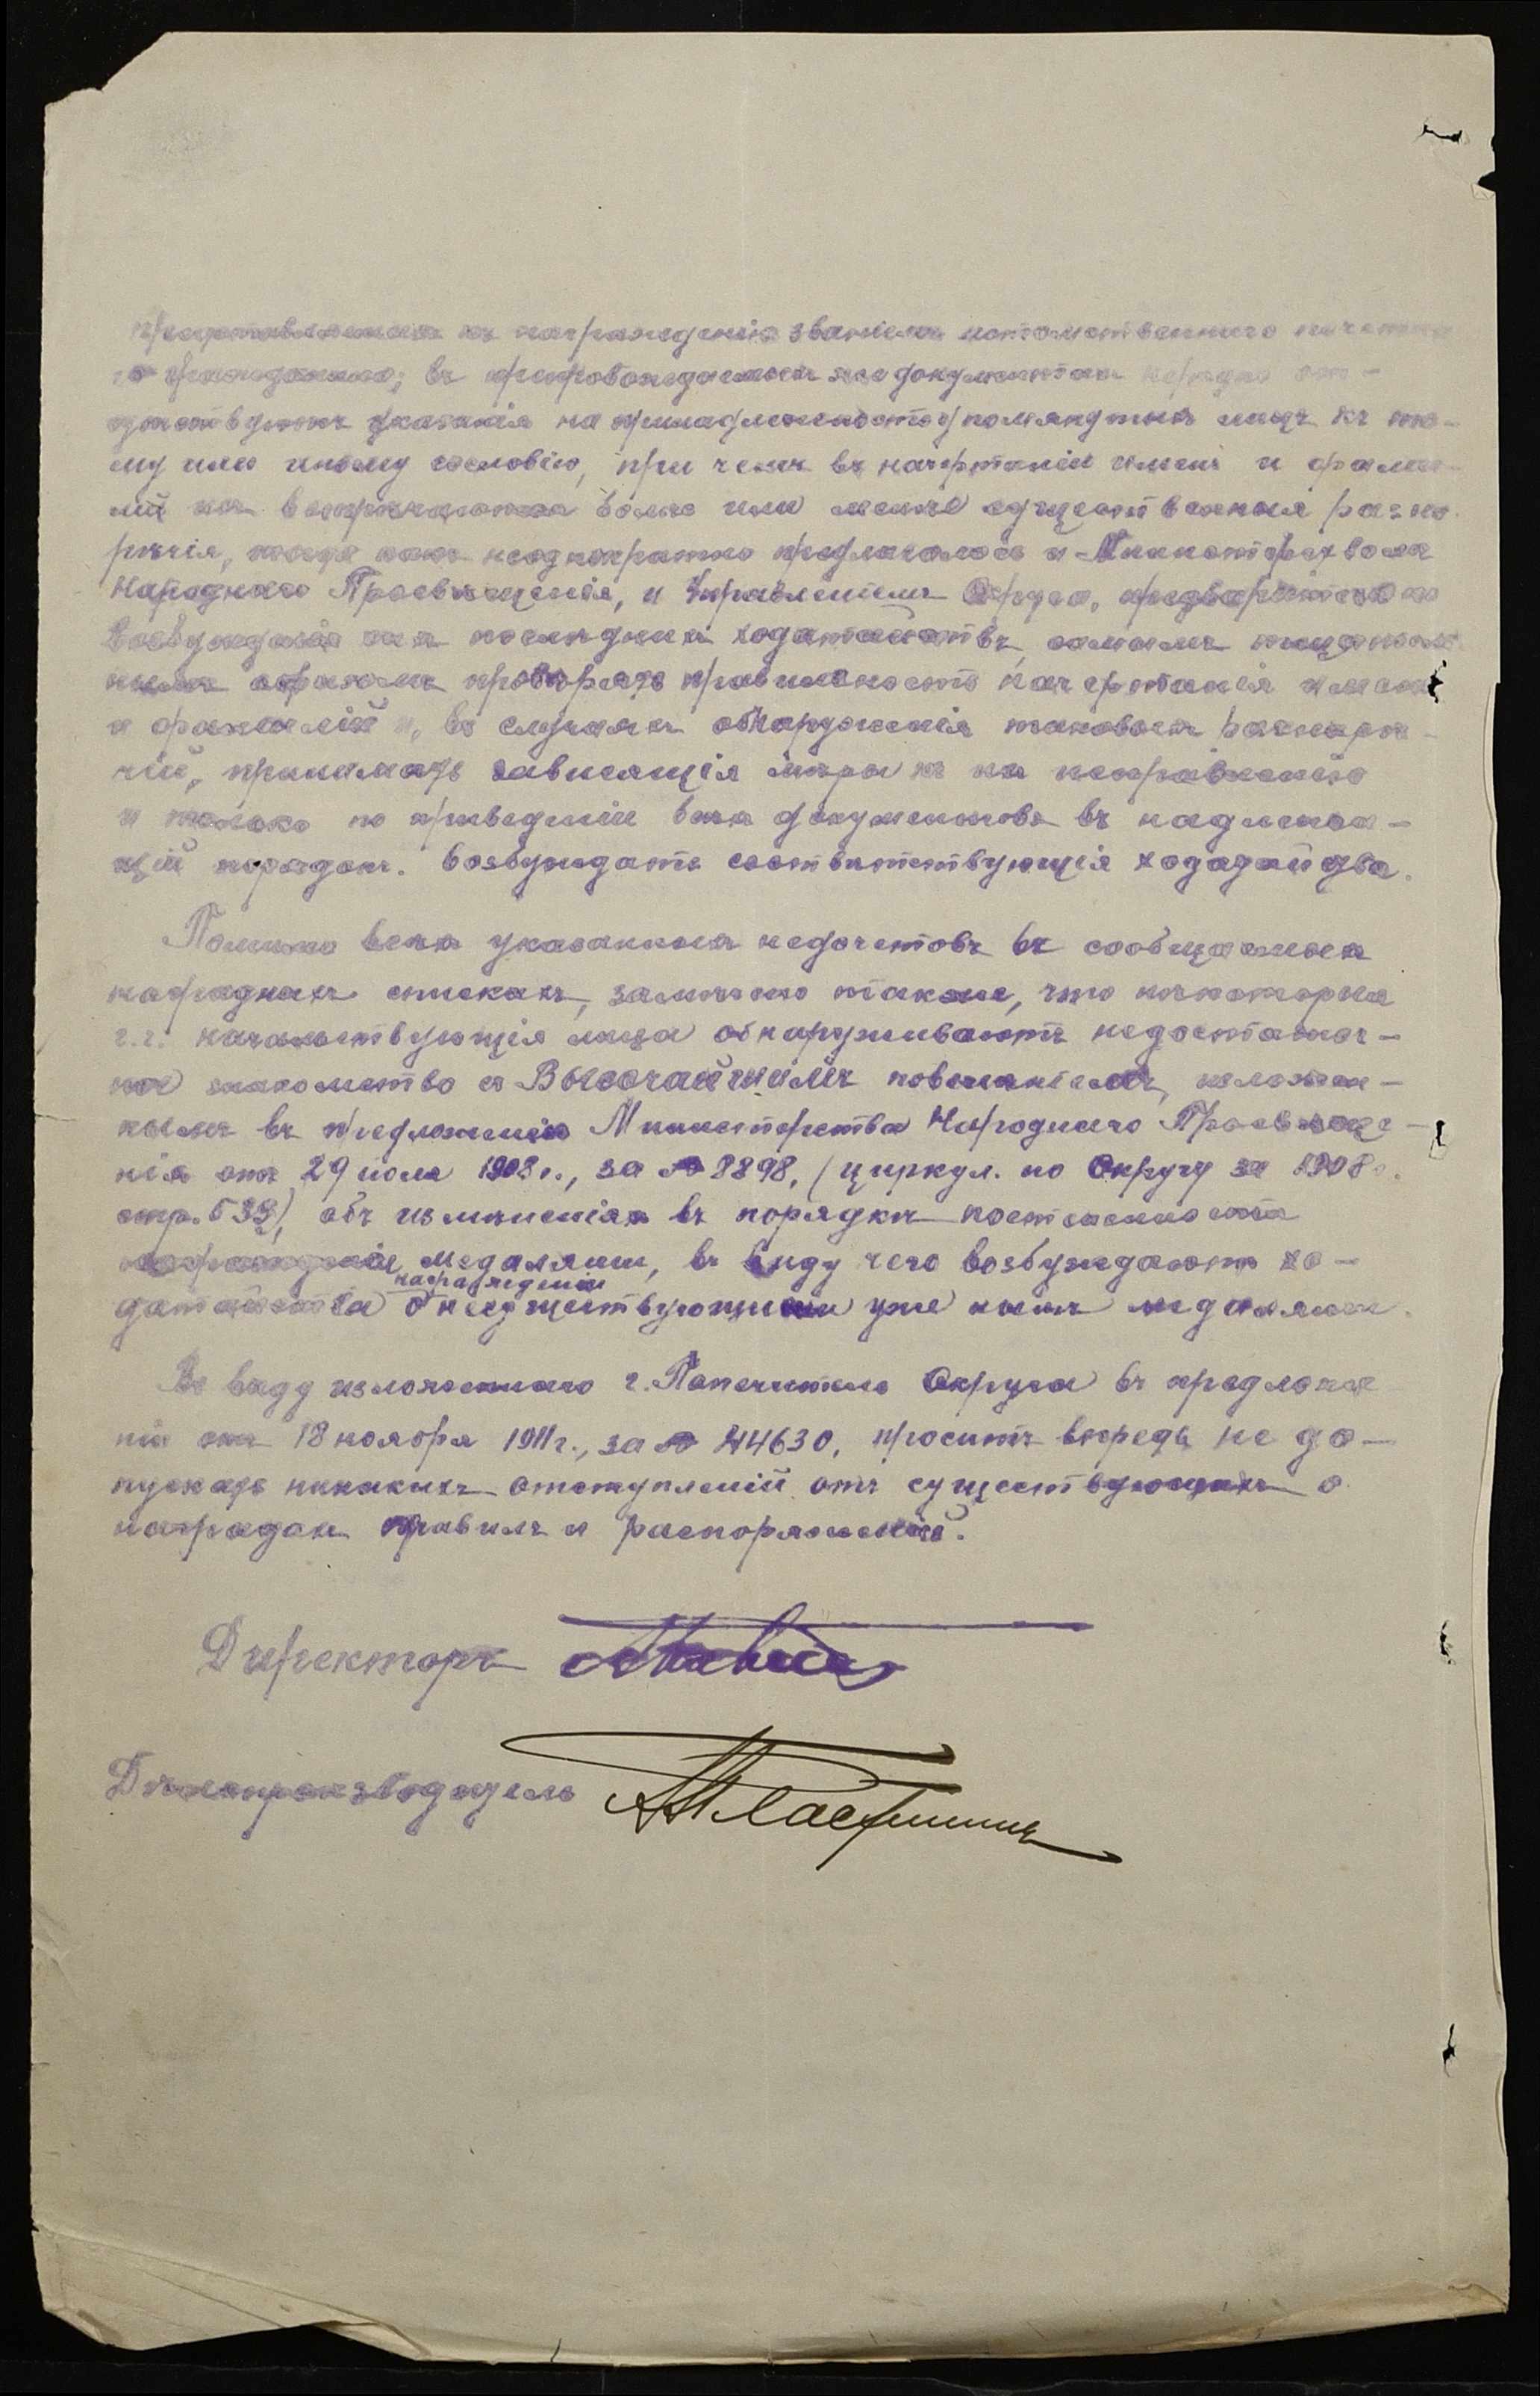 представляемыхъ къ награжденію званіемъ потомственнаго почетна
го гражданина; въ препровождаемыхъ же документахъ нерѣдко от-
сутствуютъ указанія на принадлежность упомянутыхъ лицъ къ то-
му или иному сословію, при чемъ въ начертаніи именъ и фами-
лій ихъ встрѣчаются болѣе или менѣе существенныя разно-
рѣчія, тогда какъ неоднократно предлагалось и Министерствомъ
Народнаго Просвѣщенія, и Управленіемъ Округа, предварительно
возбужденія ихъ послѣдними ходатайствъ, самымъ тщатель-
нымъ образомъ провѣрять правильность начертанія именъ
и фамилій и, въ случаяхъ обнаруженія таковыхъ разнорѣ-
чій, принимать зависящія мѣры къ ихъ исправленію
и только по приведеніи всѣхъ документовъ въ надлежа-
щій порядокъ возбуждать соотвѣтствующія ходатайства.
Помимо всѣхъ указанныхъ недочетовъ въ сообщаемыхъ
наградныхъ спискахъ, замѣчено также, что нѣкоторыя
г.г. начальствующія лица обнаруживаютъ недостаточ-
ное знакомство съ Высочайшимъ повелѣніемъ, изложен-
нымъ въ предложеніи Министерства Народнаго Просвѣще-
нія отъ 29 іюля 1908 г., за № 8898, (циркул. по Округу за 1908 г.
стр. 539), объ измѣненіяхъ въ порядкѣ постепенности
награжденія медалями, въ виду чего возбуждаютъ хо-
награжденіи
датайства о несуществующими уже нынѣ медалями.
Въ виду изложеннаго г. Попечитель Округа въ предложе
ніи отъ 18 ноября 1911 г., за № 44630, проситъ впредь не до-
пускать никакихъ отступленій отъ существующихъ о
наградахъ правилъ и распоряженій.
Директоръ
Дѣлопроизводитель